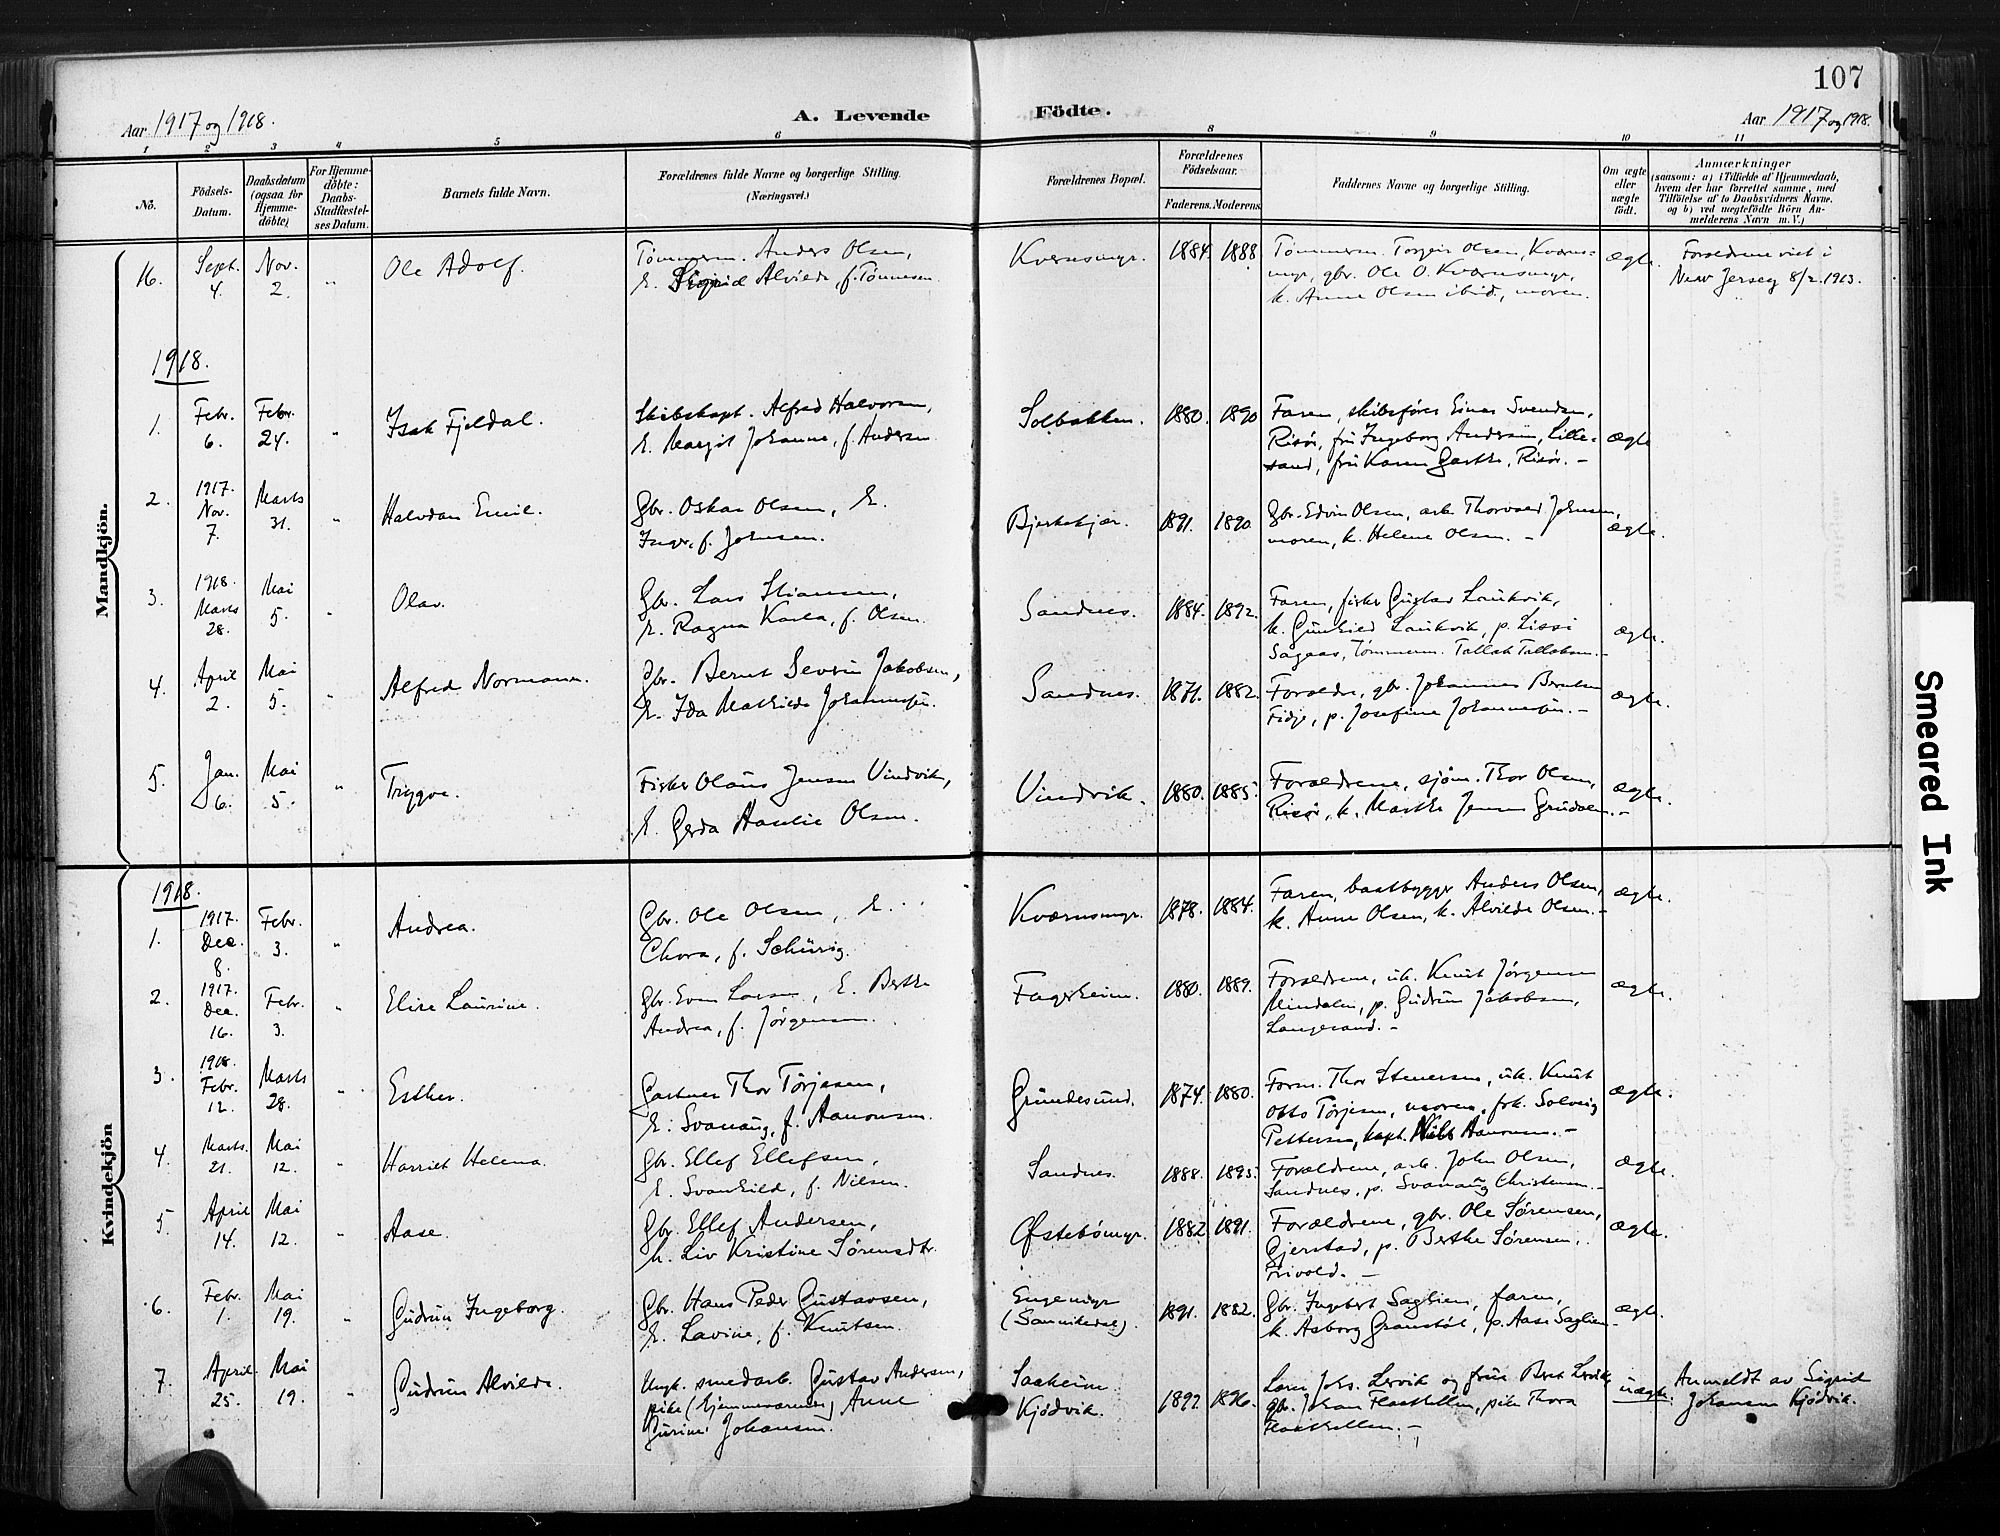 107
Aar 1917 og 1918.
A. Levende Födte.
Aar 1917 og 1918.
1 2 3 4 5 6 8 9 10 11
No.
Födsels-Datum.
Daabsdatum (ogsaa for Hjemme-döbte).
For Hjemme-döbte: Daabs-Stadfæstel-ses Datum.
Barnets fulde Navn.
Forældrenes fulde Navne og borgerlige Stilling. (Næringsvei.)
Forældrenes Bopæl.
Forældrenes Födselsaar.
Faderens. Moderens.
Faddernes Navne og borgerlige Stilling.
Om ægte eller uægte födt.
Anmærkninger
(saasom: a) i Tilfælde af Hjemmedaab,
hvem der har forrettet samme, med
Tilföielse af to Daabsvidners Navne,
og b) ved uægtefödte Börn An-
melderens Navn m. V.)
Mandkjön.
16. Sept. 4. Nov. 2. " Ole Adolf.
Tömmerm. Anders Olsen,
H. Sigrid Alvilde, f. Tönnesen.
Kvernsmyr. 1884. 1888.
Tømmerm. Torgeir Olsen, Kværns-
myr, gbr. Ole O. Kværnsmyr,
k. Anne Olsen ibid., moren.
ægte.
Forældrene viet i
New Jersey 8/2. 1913.
1918.
1. Febr. 6. Febr. 24. " Isak Fjeldal.
Skibskapt. Alfred Halvorsen,
H. Margit Johanne, f. Andersen
Solbakken. 1880. 1890
Faren, skibsfører Einar Svendsen,
Risør, fru Ingeborg Andersen, Lille-
sand, fru Karen Garthe, Risør. -
ægte
2. 1917. Nov. 7. Marts 31. " Halvdan Emil.
Gbr. Oskar Olsen, H.
Inger, f. Johnsen.
Bjerkekjær. 1891. 1890.
Gbr. Edvin Olsen, arb. Thorvald Johnsen,
moren, k. Helene Olsen. -
ægte.
3. 1918. Marts 28. Mai 5. " Olav.
Gbr. Lars Stiansen,
H. Ragna Karla, f. Olsen.
Sandnes. 1884. 1892.
Faren, fisker Gustav Laukvik,
k. Gunhild Laukvik, p. Lissi
Sagaas, Tømmerm. Tallak Tallaksen. -
ægte.
4. April 2. Mai 5. " Alfred Normann.
Gbr. Bernt Severin Jakobsen,
H. Ida Mathilde Johannesen.
Sandnes. 1871. 1882.
Forældre, gbr. Johannes Berntsen
Fidje, p. Josefine Johannesen. -
ægte.
5. Jan. 6. Mai 5. " Trygve.
Fisker Olaus Jensen Vindvik,
H. Gerda Amalie Olsen.
Vindvik. 1880. 1885.
Forældrene, sjøm. Thor Olsen,
Risør, k. Marthe Jensen -
ægte.
Kvindekjön
1918.
1. 1917. Dec. 8. Febr. 3. " Andrea.
Gbr. Ole Olsen, H.
Chora, f. Schürig.
Kværnsmyr. 1878. 1884.
Faren, baatbygger Anders Olsen,
k. Anne Olsen, k. Alvilde Olsen. -
ægte.
2. 1917. Dec. 16. Febr. 3. " Elise Laurine.
Gbr. Even Larsen, H. Berthe
Andrea, f. Jørgensen.
Fagerheim. 1880. 1889.
Forældrene, uk. Knut Jørgensen
Mindalen, p. Gudrun Jakobsen,
Langesand. -
ægte.
3. 1918. Febr. 12. Marts 28. " Esther.
Gartner Thor Törjesen,
H. Svanaug, f. Aanonsen.
Grundesund. 1874. 1880.
Form. Thor Stenersen, uk. Knut
Otto Törjesen, moren, frk. Solveig
Pettersen, kapt. Niels Aanonsen. -
ægte.
4. Marts. 21. Mai 12. " Harriet Helena.
Gbr. Ellef Ellefsen,
H. Svanhild, f. Nilsen.
Sandnes. 1888. 1895.
Forældrene, arb. John Olsen,
Sandnes, p. Svanaug Christensen. -
ægte.
5 April 14. Mai 12. " Aase.
Gbr. Ellef Andersen,
h. Liv Kristine Sørensdtr.
Østebömyr. 1882 1891.
Forældrene, gbr. Ole Sørensen,
Gjerstad, p. Berthe Sørensen,
Trivold. -
ægte.
6. Febr. 1. Mai 19. " Gudrun Ingeborg.
Gbr. Hans Peder Gustavsen,
H. Lavine, f. Knutsen.
Engemyr
(Sannikedal). 1891. 1882.
Gbr. Ingebert Saglien, faren,
k. Asborg Granstøl, p. Aase Saglien -
ægte.
7. April 25. Mai 19. " Gudrun Alvilde.
Ungk. smedarb. Gustav Andersen,
pike (hjemmeværende) Anne
Gurine Johansen.
Saaheim.
Kjødvik. 1892. 1896.
Lærer Johs. Lervik og frue Lervik,
gbr. Johan Flathellen, pike Thora
Flathellen. -
uægte.
Anmeldt av Sigrid
Johansen Kjødvik.
Smeared Ink